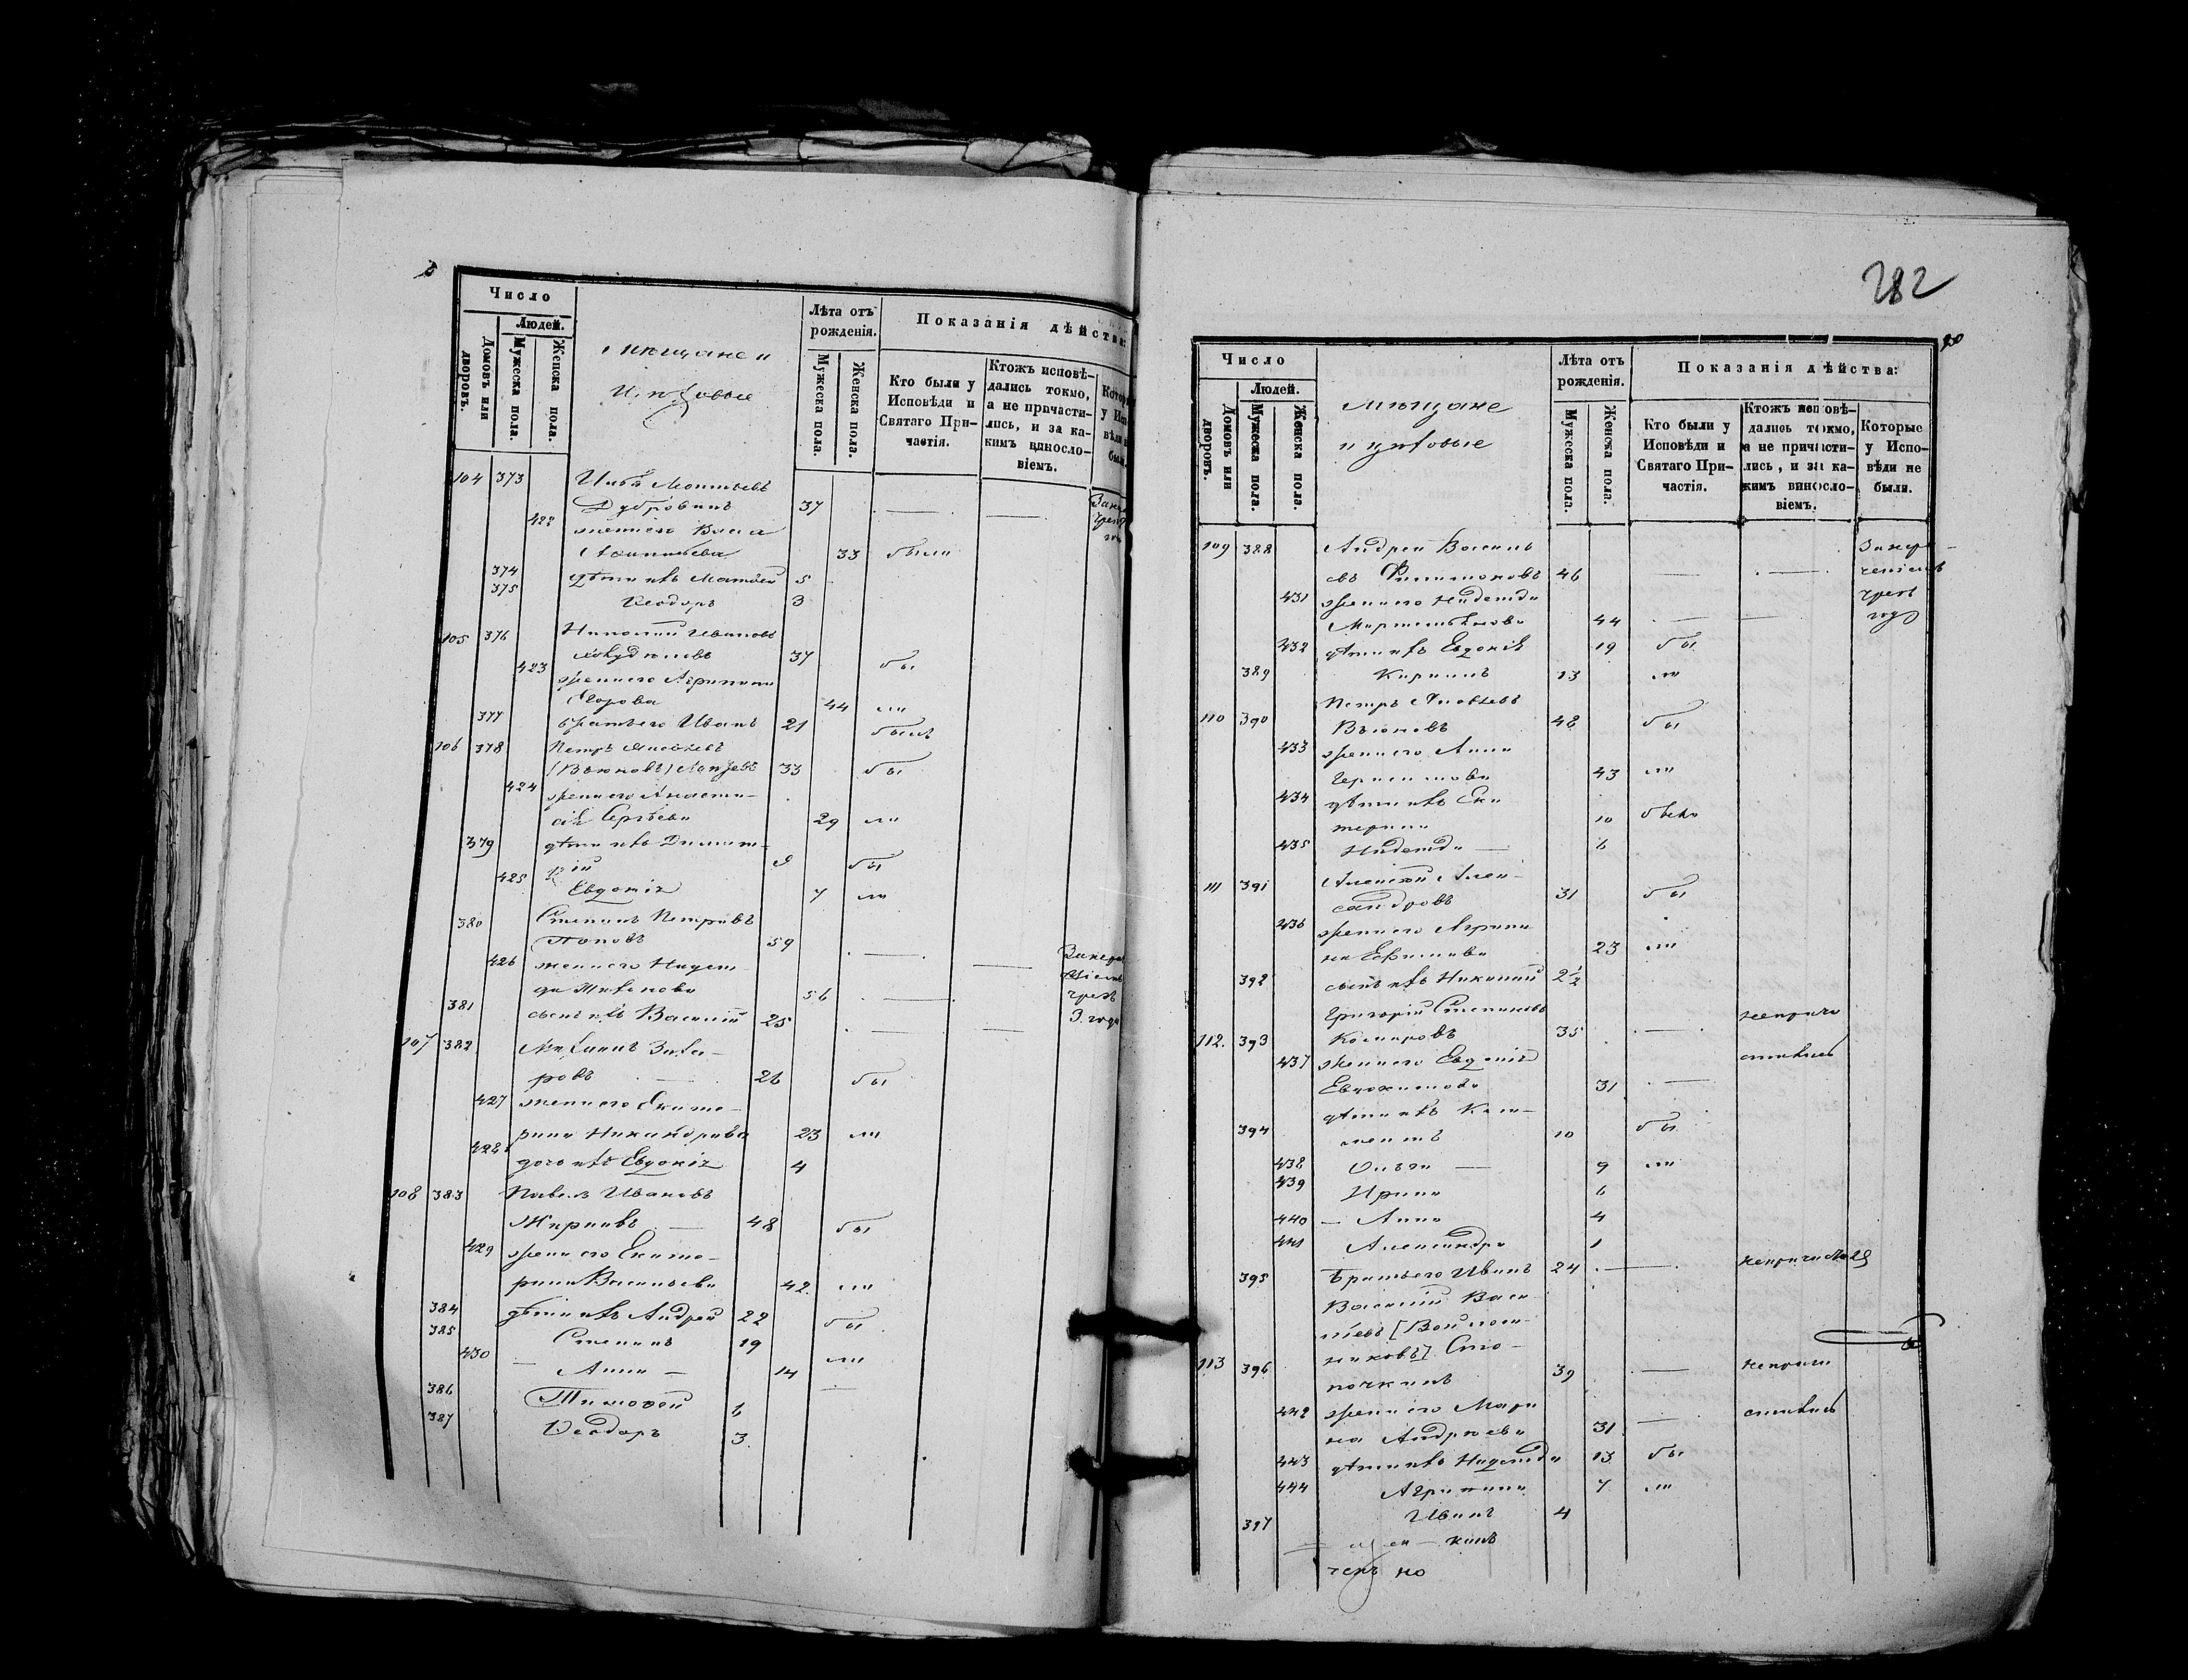 Число
Людей.
Домовъ или дворовъ.
Мужеска пола.
Женска пола.
мѣщане и
цѣховые
Лѣта отъ рожденія.
Мужеска пола.
Женска пола.
Показанія дѣйства:
Кто были у Исповѣди и Святаго Причастія.
Ктожъ исповѣдались токмо, а не причастились, и за какимъ винословіемъ.
104 373
Дубровинъ 37
422 жена его Васса
33 были
374 дѣти ихъ Матѳей 5
375 Ѳеодоръ 3
105 376 Николай Ивановъ
37 бы
423 жена его Агрипина
Егорова 44 ли
377 братъ его Иванъ 21 былъ
106 378 Петръ
(Вьюновъ) 33 бы
424 жена его Анаста-
сія Сергѣева 29 ли
379 дѣти ихъ Димит-
рій 9 бы
425 Евдокія 7 ли
380 Степанъ Петровъ
Поповъ 59
426 жена его Надеж-
да 56
381 сынъ ихъ Василій 25
чрез
3 года
107 382 Михаилъ Заха-
ровъ 26 бы
427 жена его Екате-
рина Никандрова 23 ли
428 дочь ихъ Евдокія 4
108 383 Павелъ Ивановъ
Жирновъ 48 бы
429 жена его Екате-
рина Васильева 42 ли
384 дѣти ихъ Андрей 22 бы
385 Степанъ 19 ли
430 Анна 14
386 Тимоѳей 6
387 Ѳеодоръ 3
282
Число
Людей.
Домовъ или дворовъ.
Мужеска пола.
Женска пола.
мѣщане
и цѣховые
Лѣта отъ рожденія.
Мужеска пола.
Женска пола.
Показанія дѣйства:
Кто были у Исповѣди и Святаго Причастія.
Ктожъ исповѣдались токмо, а не причастились, и за какимъ винословіемъ.
Которые у Исповѣди не были.
109 388 Андрей Василь-
евъ Филимоновъ 46
431 жена его Надежда
44
чрезъ
год
432 дѣти ихъ Евдокія 19 бы
389 Кириллъ 13 ли
Петръ Яковлевъ
110 390 Вьюновъ 48 бы
433 жена его Анна
Герасимова 43 ли
434 дѣти ихъ Ека
терина 10 была
435 Надежда 6
111 391 Алексѣй Алек-
сандровъ 31 бы
436 жена его Агрипи
на Ефимова 23 ли
392 сынъ ихъ Николай 2½
Григорій Степановъ
112. 393 Комаровъ 35 неприча
437 жена его Евдокія стились
Евдокимова 31
дѣти ихъ Кли-
394 ментъ 10 бы
438 9 ли
439 Ирина 6
440 Анна 4
441 Александра 1
395 братъ его Иванъ 24
Василій Васи-
льевъ
113 396 39 неприча
442 жена его Мари стились
на Андреева 31
443 дѣти ихъ Надежда 13 бы
444 Агрипина 7 ли
397 Иванъ 4